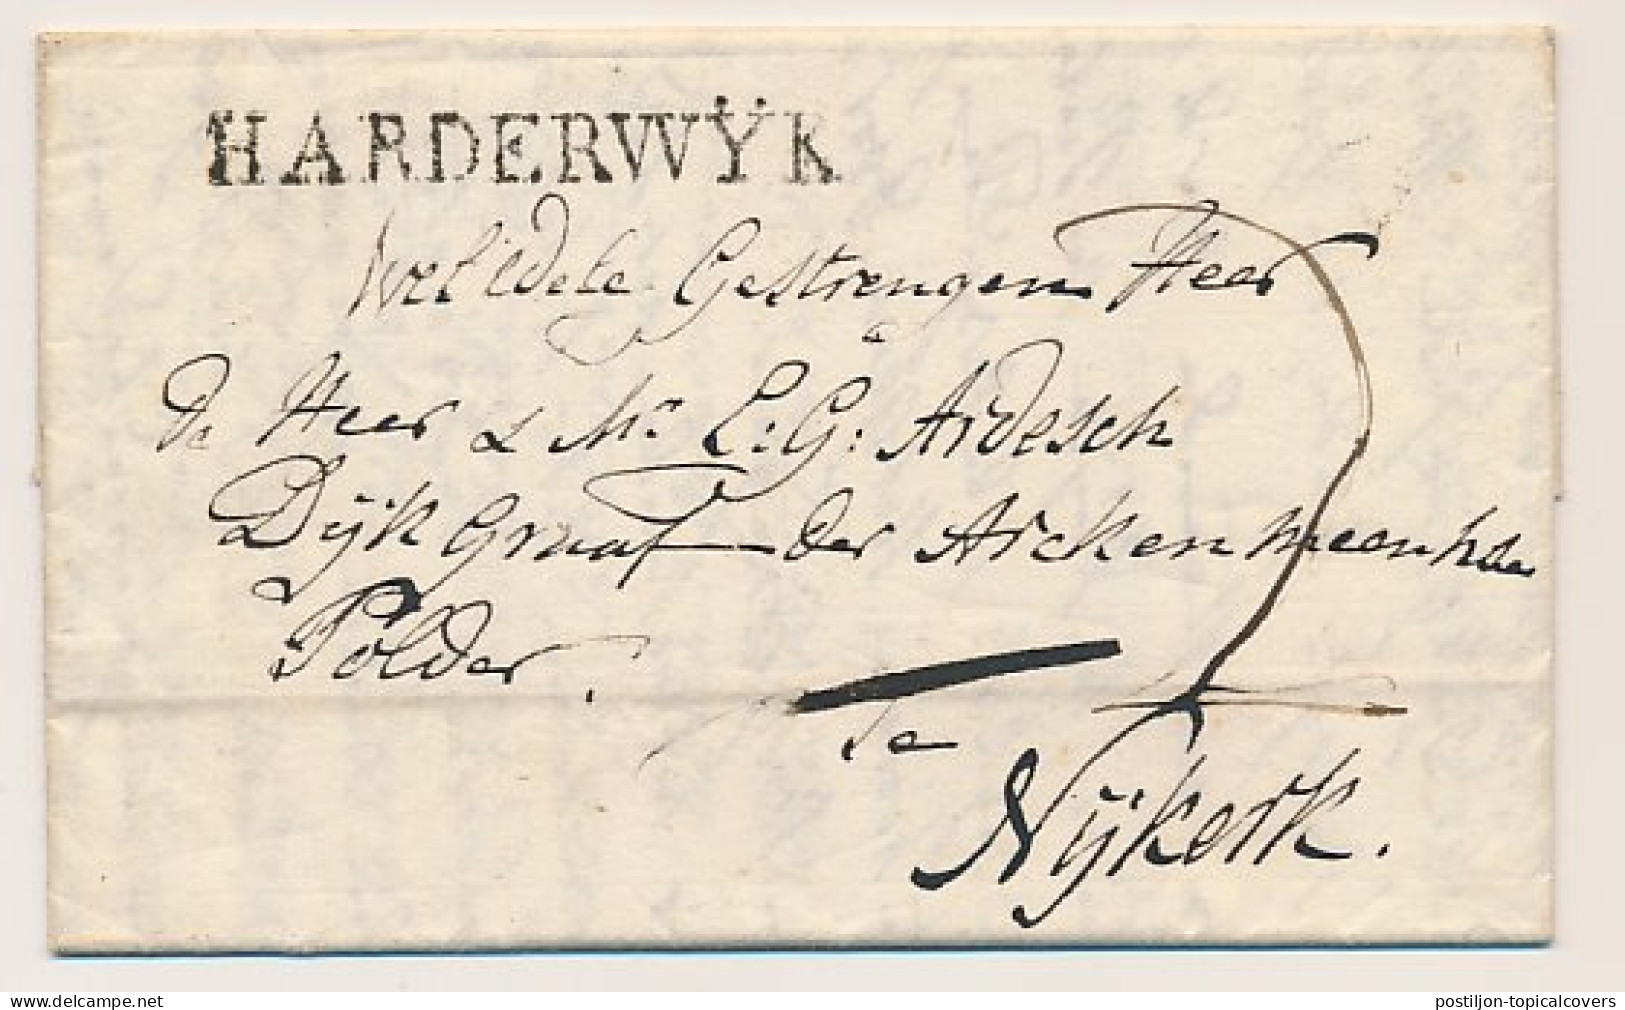 HARDERWŸK
Wel Edele Gestrengen Heer
De Heer & Mr. L: G: Ardesch
Dijk Graaf der Arckenmeenhee
Polder.
te
Nijkerk.
delcampe.net
postiljon-topicalcovers